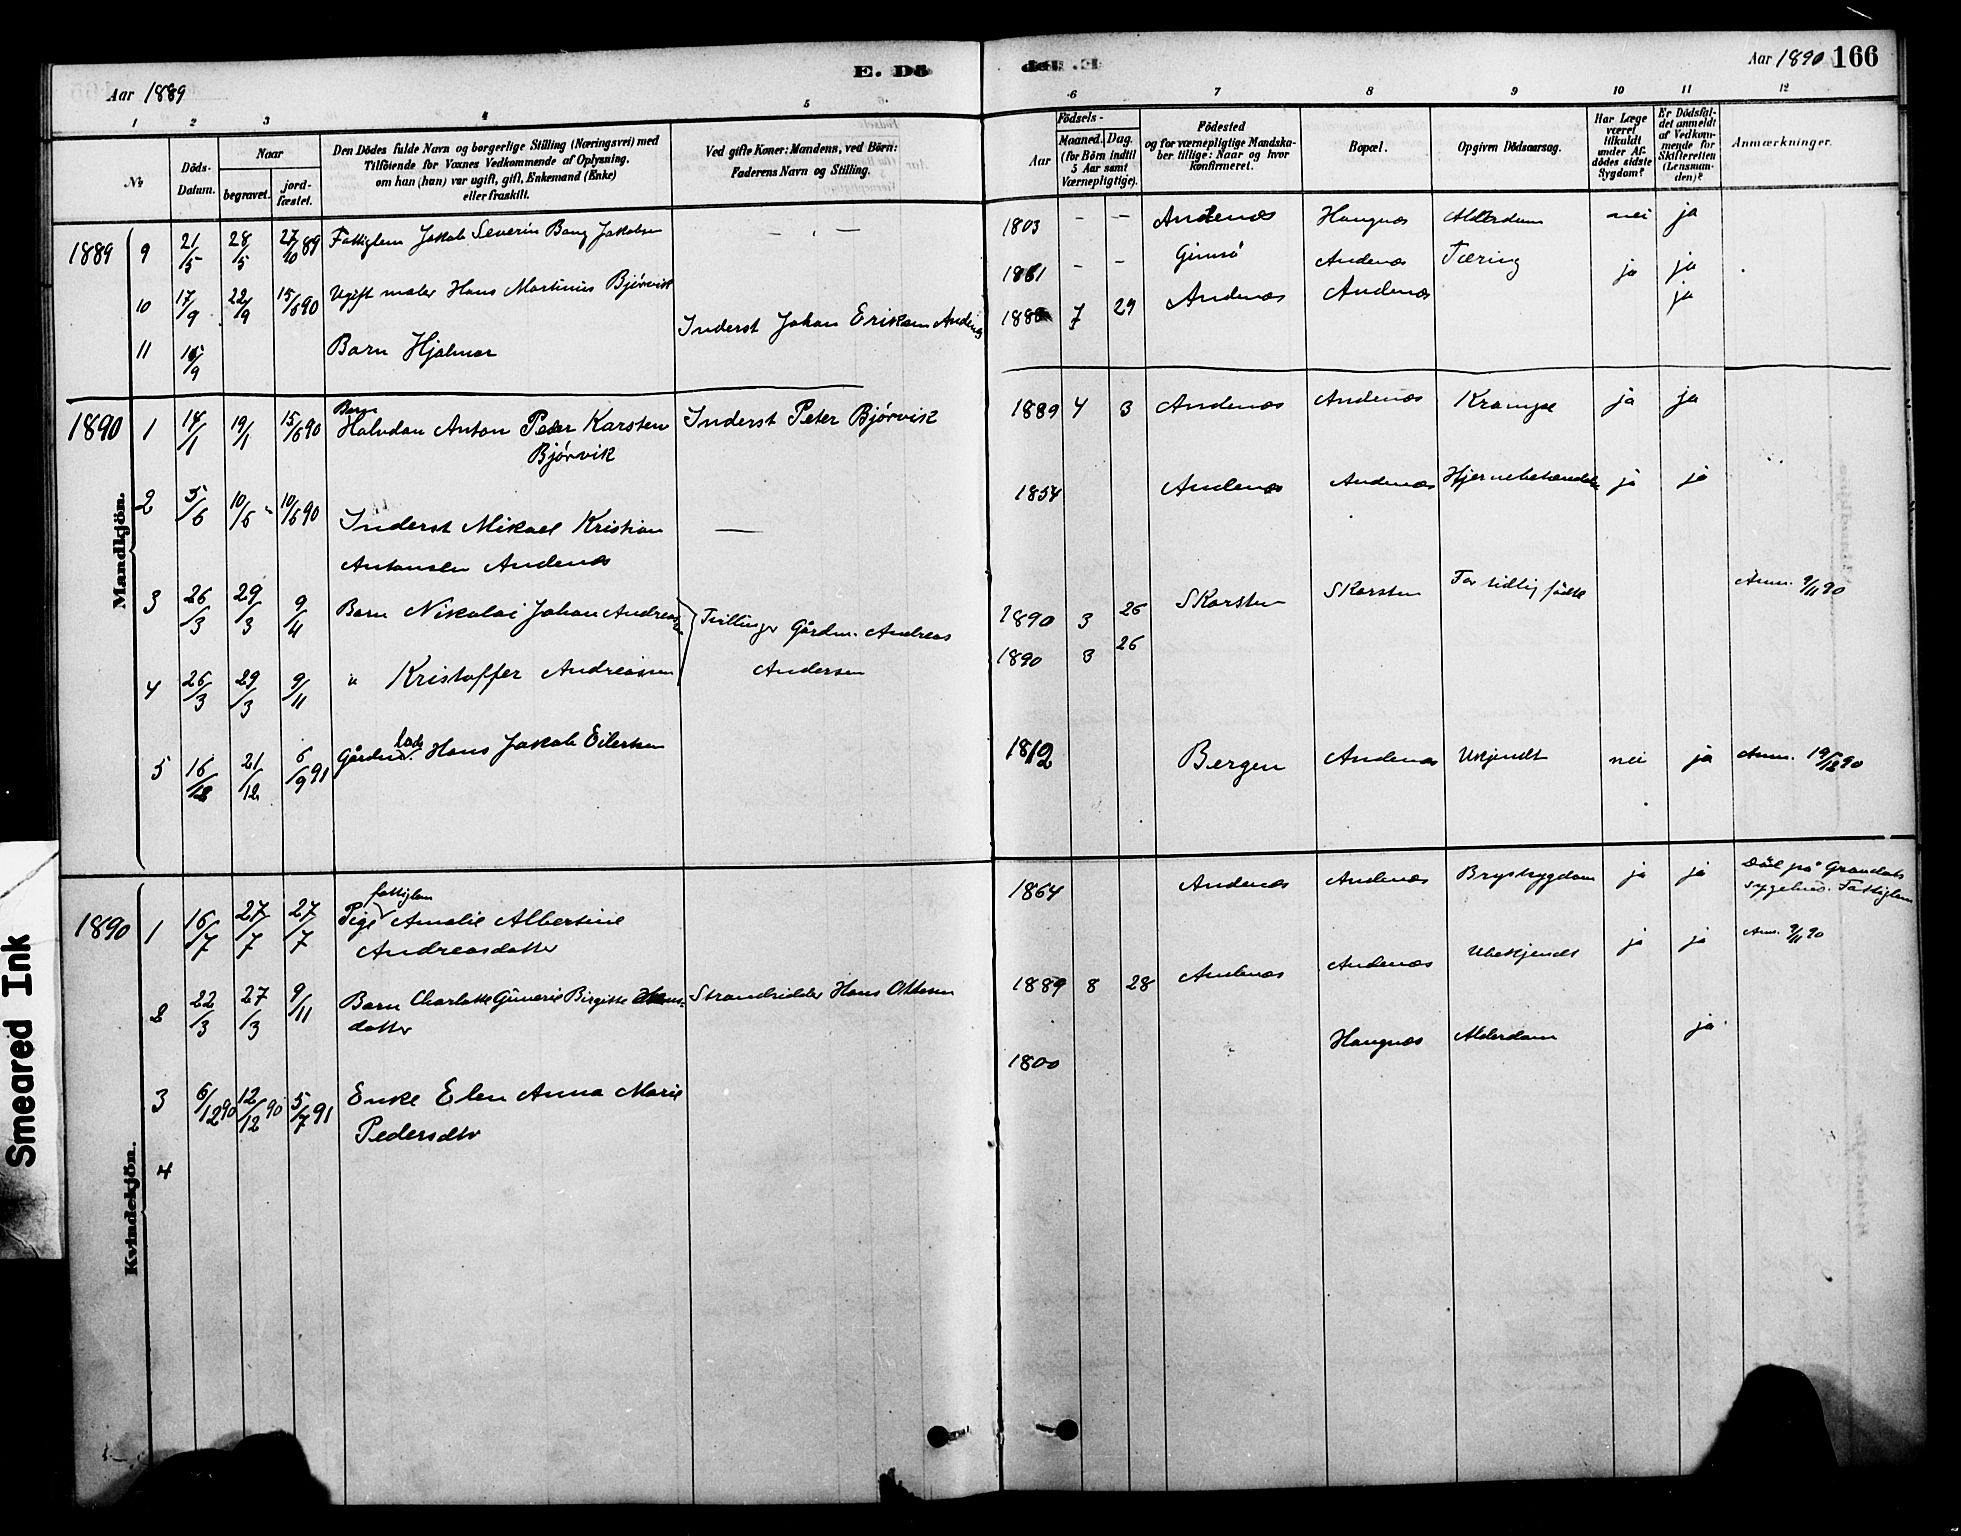 Aar 1889
E. Dö
Aar 1890 166
1 2 3 4 5 6 7 8 9 10 11 12
№
Döds-
Datum.
Naar
begravet.
jord-
fæstet.
Den Dödes fulde Navn og borgerlige Stilling (Næringsvei) med
Tilföiende for Voxnes Vedkommende af Oplysning,
om han (hun) var ugift, gift, Enkemand (Enke)
eller fraskilt.
Ved gifte Koner: Mandens, ved Börn:
Faderens Navn og Stilling.
Födsels-
Aar
Maaned. Dag.
(for Börn indtil
5 Aar samt
Værnepligtige).
Födested
og for værnepligtige Mandska-
ber tillige: Naar og hvor
konfirmeret.
Bopæl.
Opgiven Dödsaarsag.
Har Læge
været
tilkaldt
under Af-
dödes sidste
Sygdom?
Er Dödsfal-
det anmeldt
af Vedkom-
mende for
Skifteretten
(Lensman-
den)?
Anmærkninger.
1889 9 21/5 28/5 27/10 89 Fattiglem Jakob Severin Bang Jakobsen — — 1803 – – Andenæs Haugnæs Alderdom nei ja
10 17/9 22/9 15/6 90 Ugift maler Hans Martinius Bjørvik 1861 – – Gimsö Andenæs Tæring ja ja
11 15/9 Barn Hjalmar Inderst Johan Eriksen Andenæs 7 29 Andenæs Andenæs ja
Mandkjön.
1890 1 14/1 19/1 15/6 90 Barn
Halvdan Anton Peder Karsten
Bjørvik
Inderst Peter Bjørvik 1889 4 3 Andenæs Andenæs Krampe ja ja
2 5/6 10/6 10/6 90 Inderst Mikael Kristian
Antonsen Andenæs
— 1854 Andenæs Andenæs ja ja
3 26/3 29/3 9/11 Barn Nikolai Johan Andreassen
Tvillinger Gårdm. Andreas
Andersen
1890 3 26 Skarsten Skarsten For tidlig födte Anm. 9/11 90
4 26/3 29/3 9/11 " Kristoffer Andreassen 1890 3 26
5 16/12 21/12 6/9 91 Gårdm. Hans Jakob Eilertsen 1812 Bergen Andenæs Ukjendt nei ja Anm. 19/12 90
Kvindekjön.
1890 1 16/7 27/7 27/7 fattiglem
Pige Amalie Albertine
Andreasdatter
1864 Andenæs Andenæs Brystsygdom ja ja Död på
sygehus. Fattiglem
2 22/3 27/3 9/11 Barn Charlotte Birgitte Hans-
datter
Hans Ottesen 1889 8 28 Andenæs Andenæs Ubekjendt ja ja Anm. 9/11 90
3 6/12 90 12/12 90 5/7 91 Enke Elen Anna Marie
Pedersdtr
1800 Haugnæs Alderdom ja
4
Smeared Ink